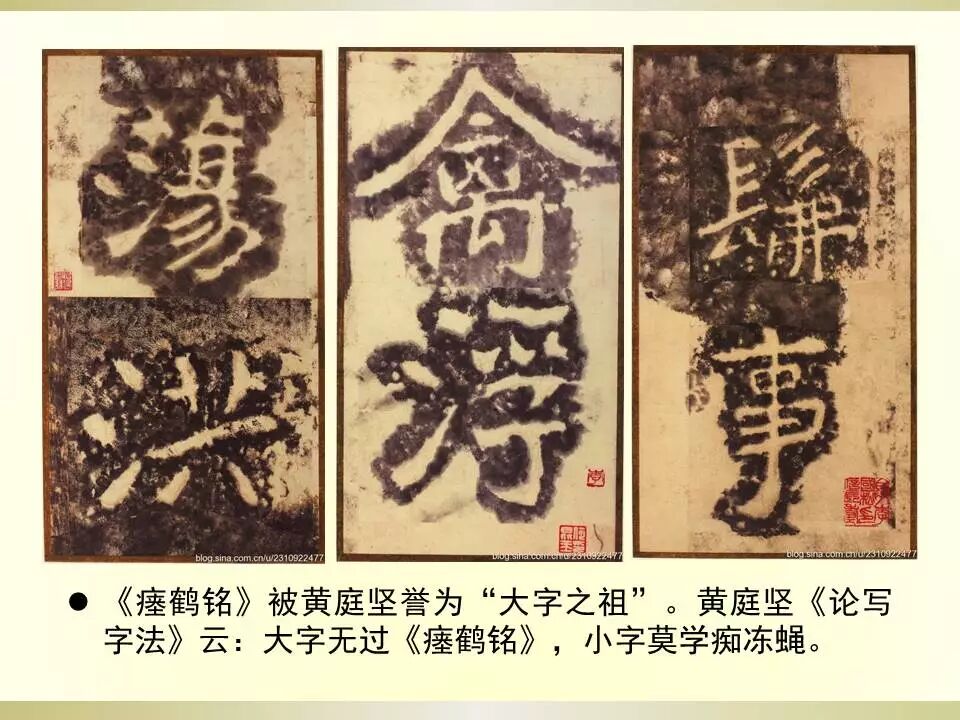 蕩
洪
禽
浮
髴
事
blog.sina.com.cn/u/2310922477
blog.sina.com.cn/u/2310922477
blog.sina.com.cn/u/2310922477
● 《瘗鹤铭》被黄庭坚誉为“大字之祖”。黄庭坚《论写
字法》云：大字无过《瘗鹤铭》，小字莫学痴冻蝇。